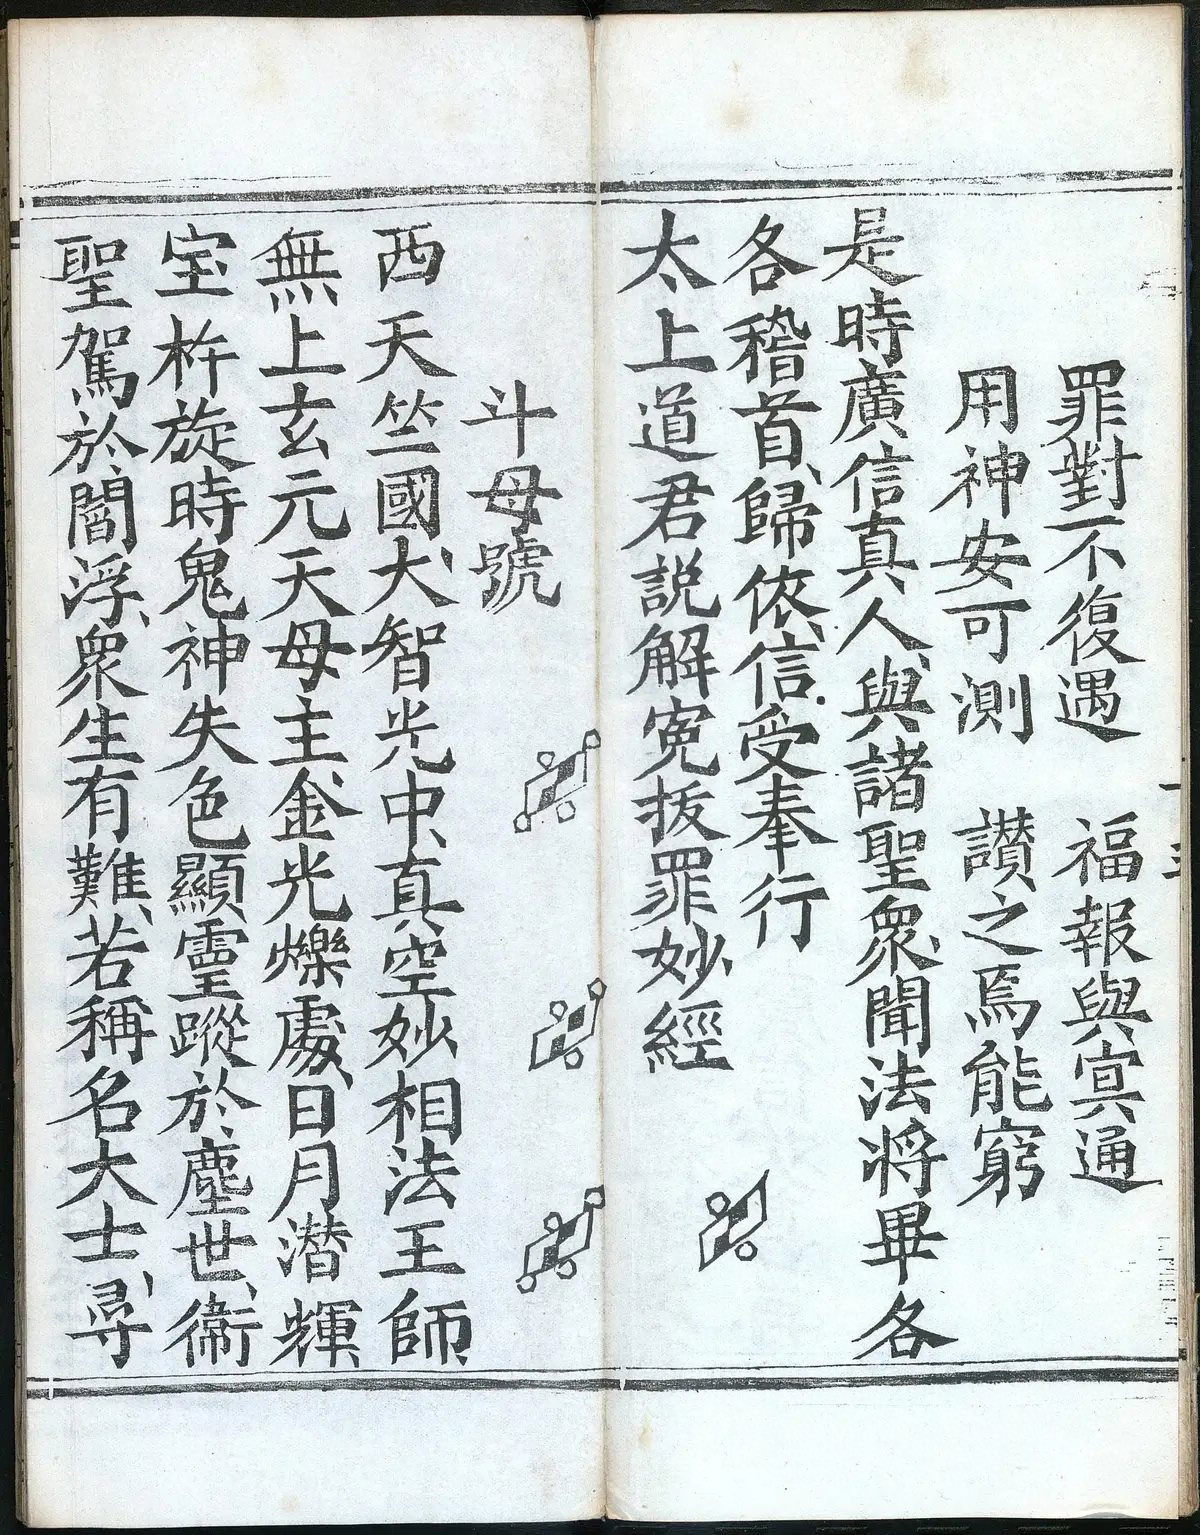 罪對不復遇　福報與冥通
用神安可測　讃之焉能窮
是時廣信真人、與諸聖衆、聞法將畢各
各稽首、歸依、信受奉行
太上道君説解寃拔罪妙經
斗母號
西天竺國大、智光中、真空妙相法王師
無上玄元天母主、金光爍處、日月潜輝
宝杵旋時鬼神失色顯靈蹤於、塵世、衞
聖駕於、閻浮、衆生有難、若稱名大士、尋